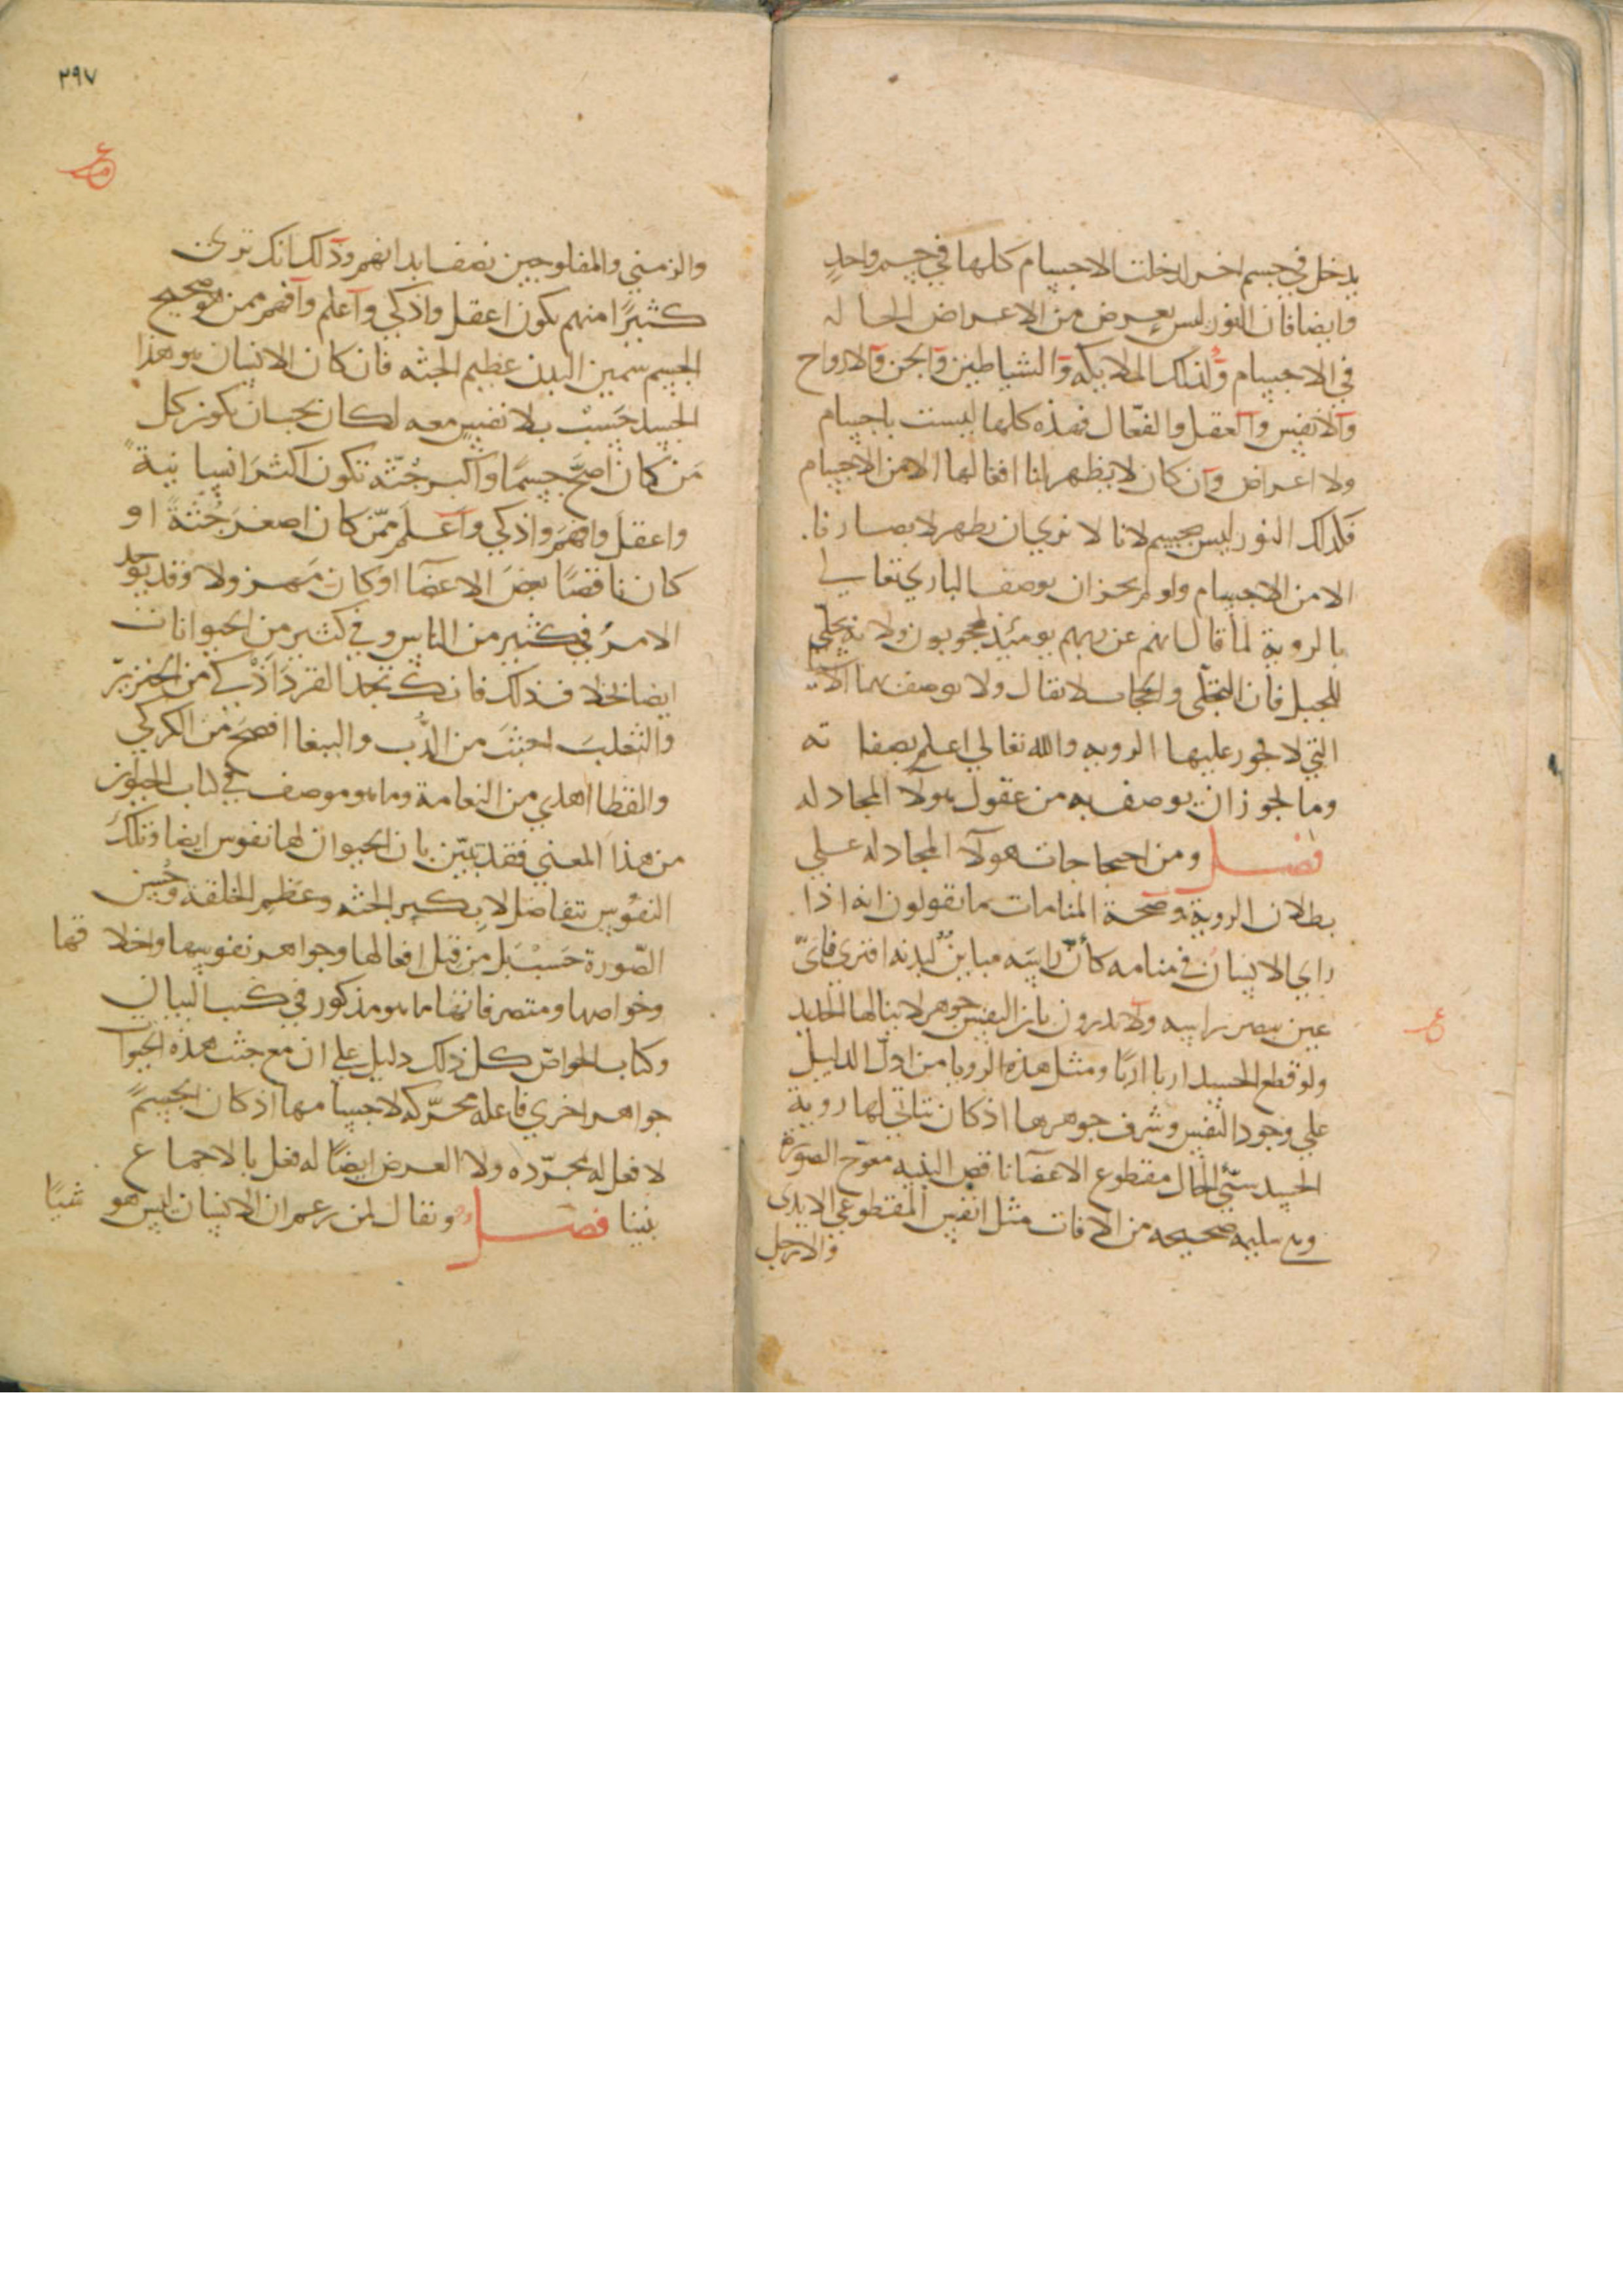 يدخل في جسم اخر لدخلت الاجسام كلها في جسم واحد
وايضا فان النور ليس بعرض من الاعراض الحاله
في الاجسام وكذلك الملايكه والشياطين والجن والارواح
والانفس والعقل والفعّال فهذه كلها ليست باجسام
ولا اعراض وان كان لا يظهر لنا افعالها الا من الاجسام
فكذلك النور ليس بجسم لانا لا نري ان يظهر لابصارنا
الا من الاجسام ولو لم يجز ان يوصف الباري تعالي
بالروية لما قال انهم عن ربهم يومئذ لمحجوبون ولا تجلي
للجبل فان التجلّي والحجاب لا يقال ولا يوصف بها الاشيا
التي لا تجوز عليها الرويه والله تعالي اعلم بصفاته
وما يجوز ان يوصف به من عقول هولآ المجادله
فصل ومن احتجاجات هولآ المجادله علي
بطلان الروية وصحة المنامات ما يقولون انه اذا
راي الانسان في منامه كأنّ راسه مباينٌ لبدنه افتري فايّ
عين يبصر راسه ولا يدرون بان النفس جوهر لا ينالها الحديد
ولو قطع الجسد اربا اربًا ومثل هذه الرويا من ادلّ الدليل
علي وجود النفس وشرف جوهرها اذ كان تتاتي لها روية
الجسد سيّي الحال مقطوع الاعضآ ناقص البنيه معوّج الصورة
وهي سليمه صحيحه من الافات مثل انفس المقطوعي الايدي
والارجل
٢٩٧
والزمني والمفلوجين نصف ابدانهم وذلك انك تري
كثيرًا منهم يكون اعقل واذكي واعلم وافهم ممن هو صحيح
الجسم سمين البدن عظيم الجثه فان كان الانسان هو هذا
الجسد حَسْب بلا نفس معه لكان يجب ان يكون كل
مَن كان اصحَّ جسمًا واكبر جُثّة تكون اكثرَ انسانيةً
واعقلَ وافهمَ واذكي واعلمَ ممّن كان اصغرَ جُثةً او
كان ناقصًا بعضَ الاعضآ او كان مهزولا وقد يوجد
الامرُ في كثير من الناس وفي كثير من الحيوانات
ايضا بخلاف ذلك فانك تجد القرد اذكي من الخنزير
والثعلبَ اخبثَ من الدُّب والببغا افصحَ من الكركي
والقطا اهدي من النعامة وما هو موصف في كتاب الحيوان
من هذا المعني فقد تبيّن بان الحيوان لها نفوس ايضا وتلك
النفوس تتفاضل لا بكبر الجثه وعظم الخلقة وحُسن
الصّورة حَسْبُ بَل من قبَل افعالها وجواهر نفوسها واخلاقها
وخواصها ومتصرفاتها ما هو مذكور في كتب البيان
وكتاب الخواصّ كل ذلك دليل علي ان مع جثث هذه الحيوان
جواهر اخري فاعله محرّكه لاجسامها اذ كان الجسمُ
لا فعل له بمجرّده ولا العرض ايضًا له فعل بالاجماع
بيننا فصل ونقال لمن زعم ان الانسان ليس هو شيًا